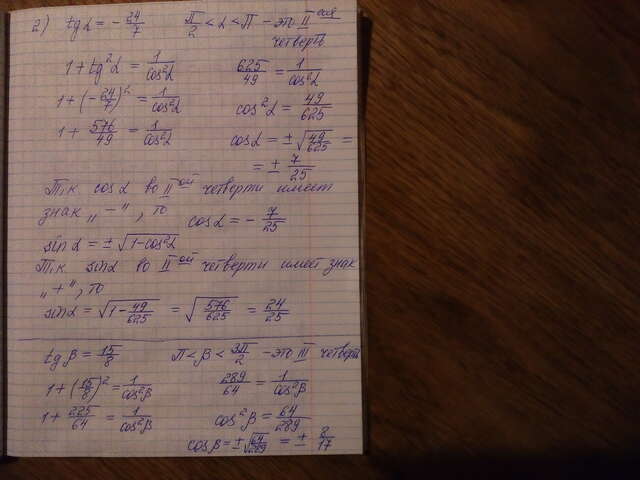 2) tg α = - 24/7   π/2 < α < π - это II ая четверть
1 + tg²α = 1/cos²α   625/49 = 1/cos²α
1 + (-24/7)² = 1/cos²α   cos²α = 49/625
1 + 576/49 = 1/cos²α   cosα = ± √49/625 =
= ± 7/25
Т.к cos α во II ой четверти имеет
знак „-", то   cosα = - 7/25
sin α = ± √1-cos²α
Т.к sinα во II ой четверти имеет знак
„+", то
sinα = √1 - 49/625 = √576/625 = 24/25
tg β = 15/8   π < β < 3π/2 - это III четверть
1 + (15/8)² = 1/cos²β   289/64 = 1/cos²β
1 + 225/64 = 1/cos²β   cos²β = 64/289
cosβ = ± √64/289 = ± 8/17